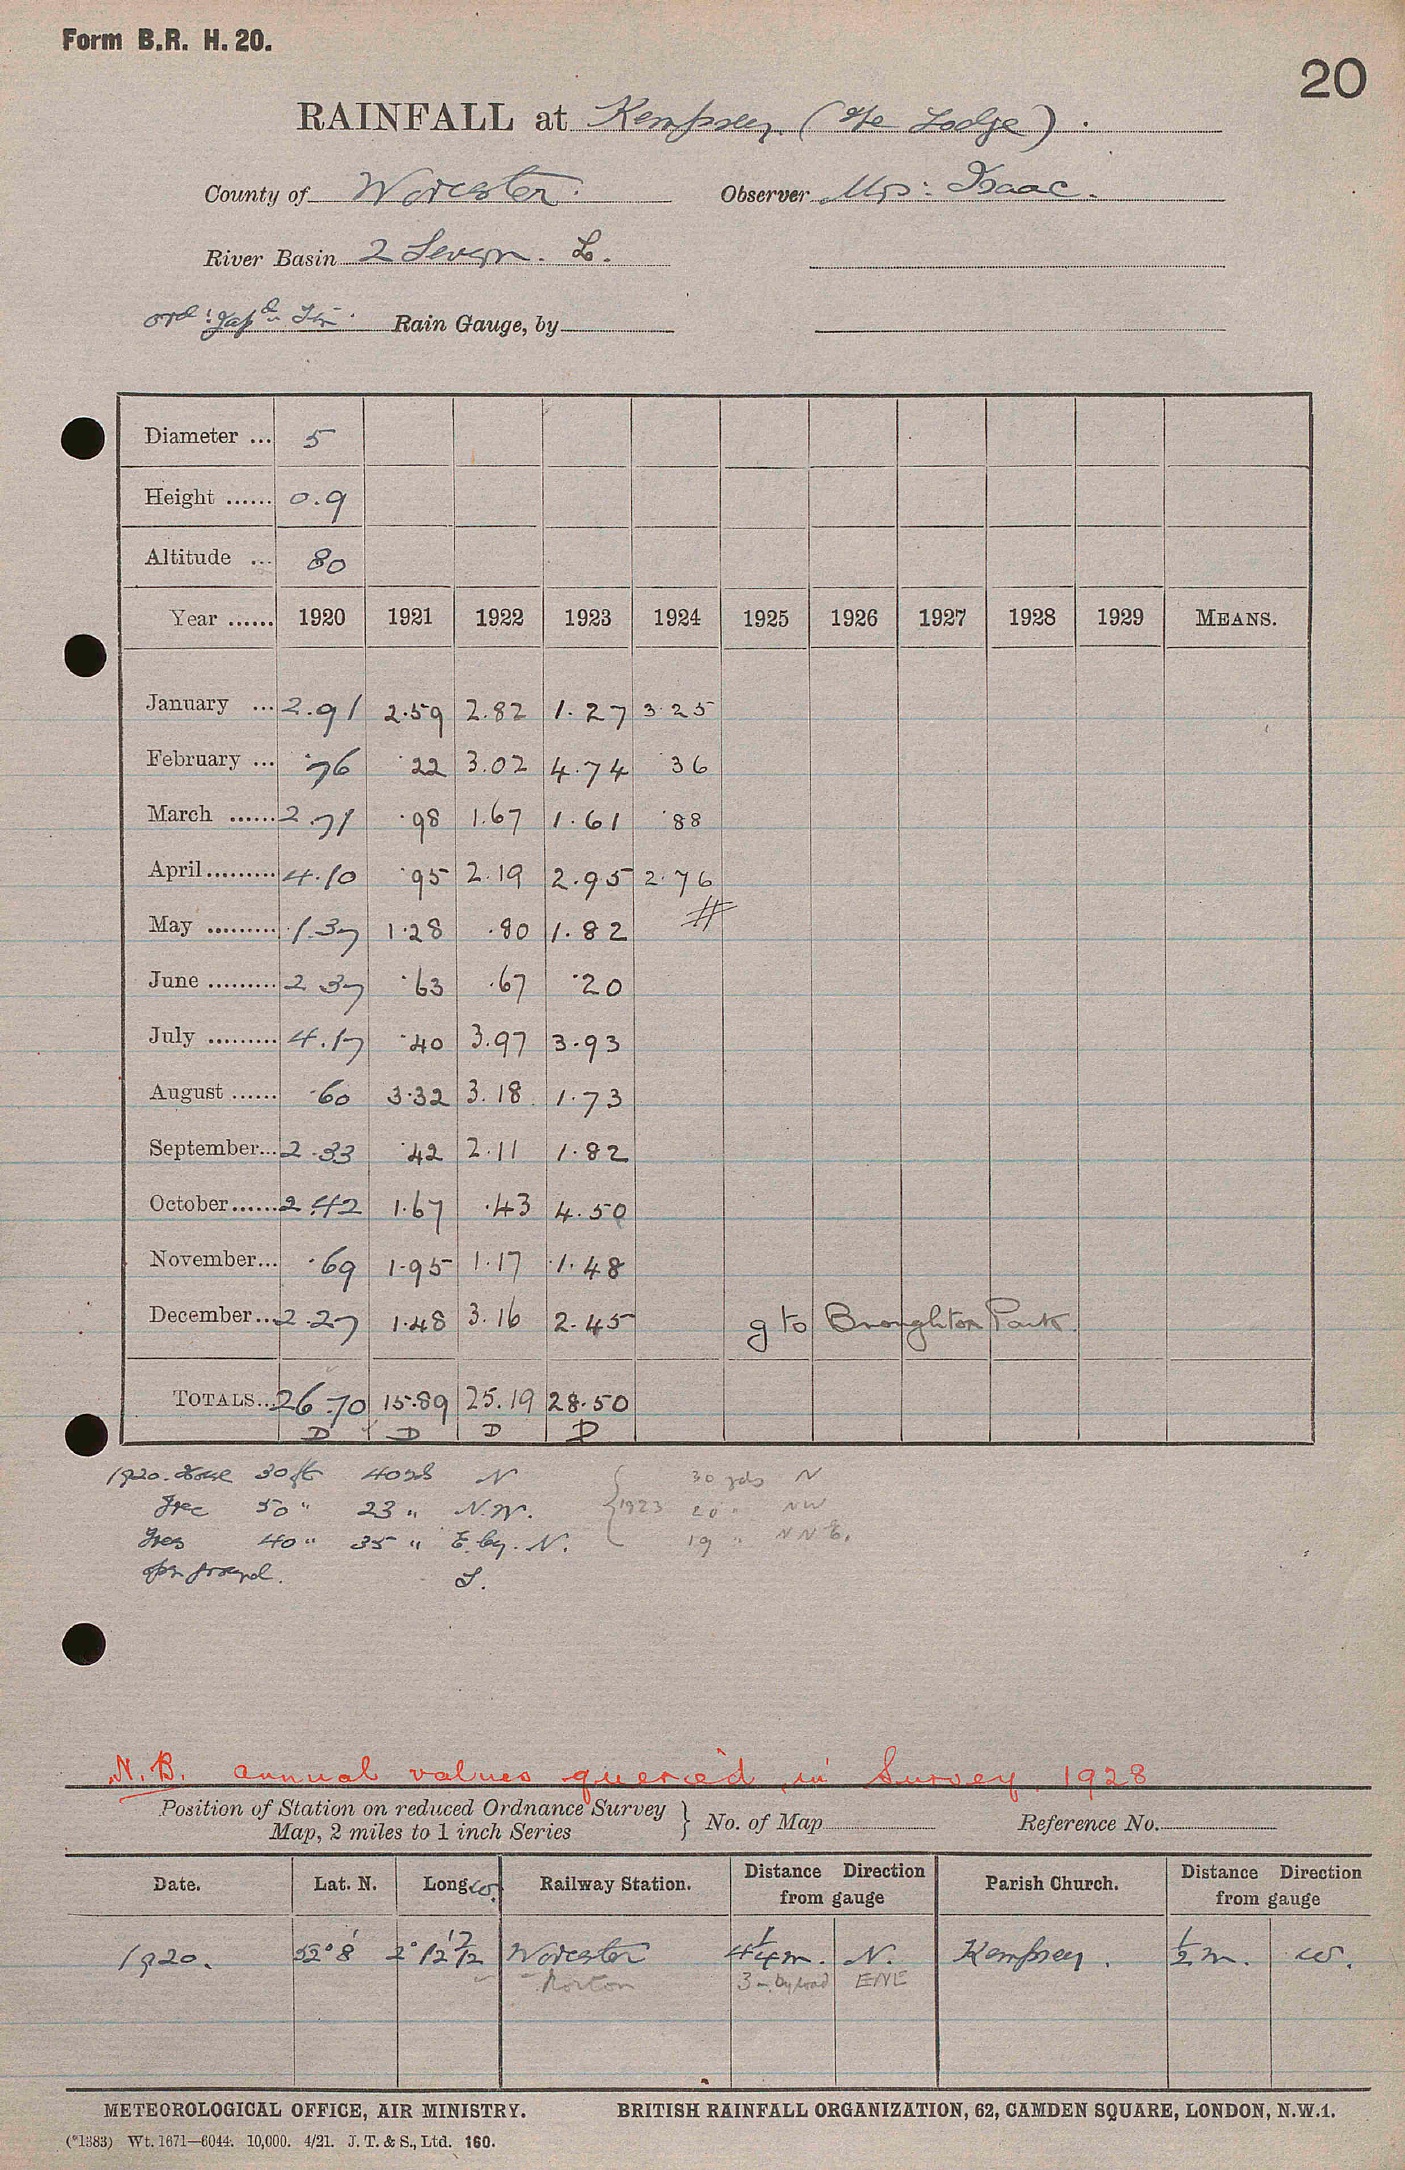 Form B.R. H. 20.
20
RAINFALL at Kempsey (The Lodge).
County of Worcester. Observer Mrs: Isaac.
River Basin 2 Severn. L.
Rain Gauge, by
Diameter ... 5
Height ...... 0.9
Altitude ... 80
Year ...... 1920 1921 1922 1923 1924 1925 1926 1927 1928 1929 MEANS.
January ... 2.91 2.59 2.82 1.27 3.25
February ... .76 .22 3.02 4.74 .36
March ...... 2.71 .98 1.67 1.61 .88
April ......... 4.10 .95 2.19 2.95 2.76
May ......... 1.37 1.28 .80 1.82 #
June ......... 2 37 .63 .67 .20
July ......... 4.17 .40 3.97 3.93
August ...... .60 3.32 3.18 1.73
September... 2.33 .42 2.11 1.82
October...... 2.42 1.67 .43 4.50
November... .69 1.95 1.17 1.48
December... 2.27 1.48 3.16 2.45 g to Broughton Park.
TOTALS... 26.70 15.89 25.19 28.50
D D D D
1920. House 30 ft 40 yds N { 30 yds N
Tree 50 " 23 " N.W. 1923 20 " NW
Trees 40 " 35 " E. by. N. 19 " N N E.
open ground. S.
N.B. annual values queried in Survey 1928
Position of Station on reduced Ordnance Survey Map, 2 miles to 1 inch Series } No. of Map Reference No.
Date. Lat. N. Long. W. Railway Station. Distance Direction from gauge Parish Church. Distance Direction from gauge
1920. 52° 8' 2° 12' 7/12 Worcester 4 1/4 m. N. Kempsey. 1/2 m. W.
Norton 3 m. by road ENE
METEOROLOGICAL OFFICE, AIR MINISTRY. BRITISH RAINFALL ORGANIZATION, 62, CAMDEN SQUARE, LONDON, N.W.1.
(*1383) Wt. 1671—6044. 10,000. 4/21. J. T. & S., Ltd. 160.